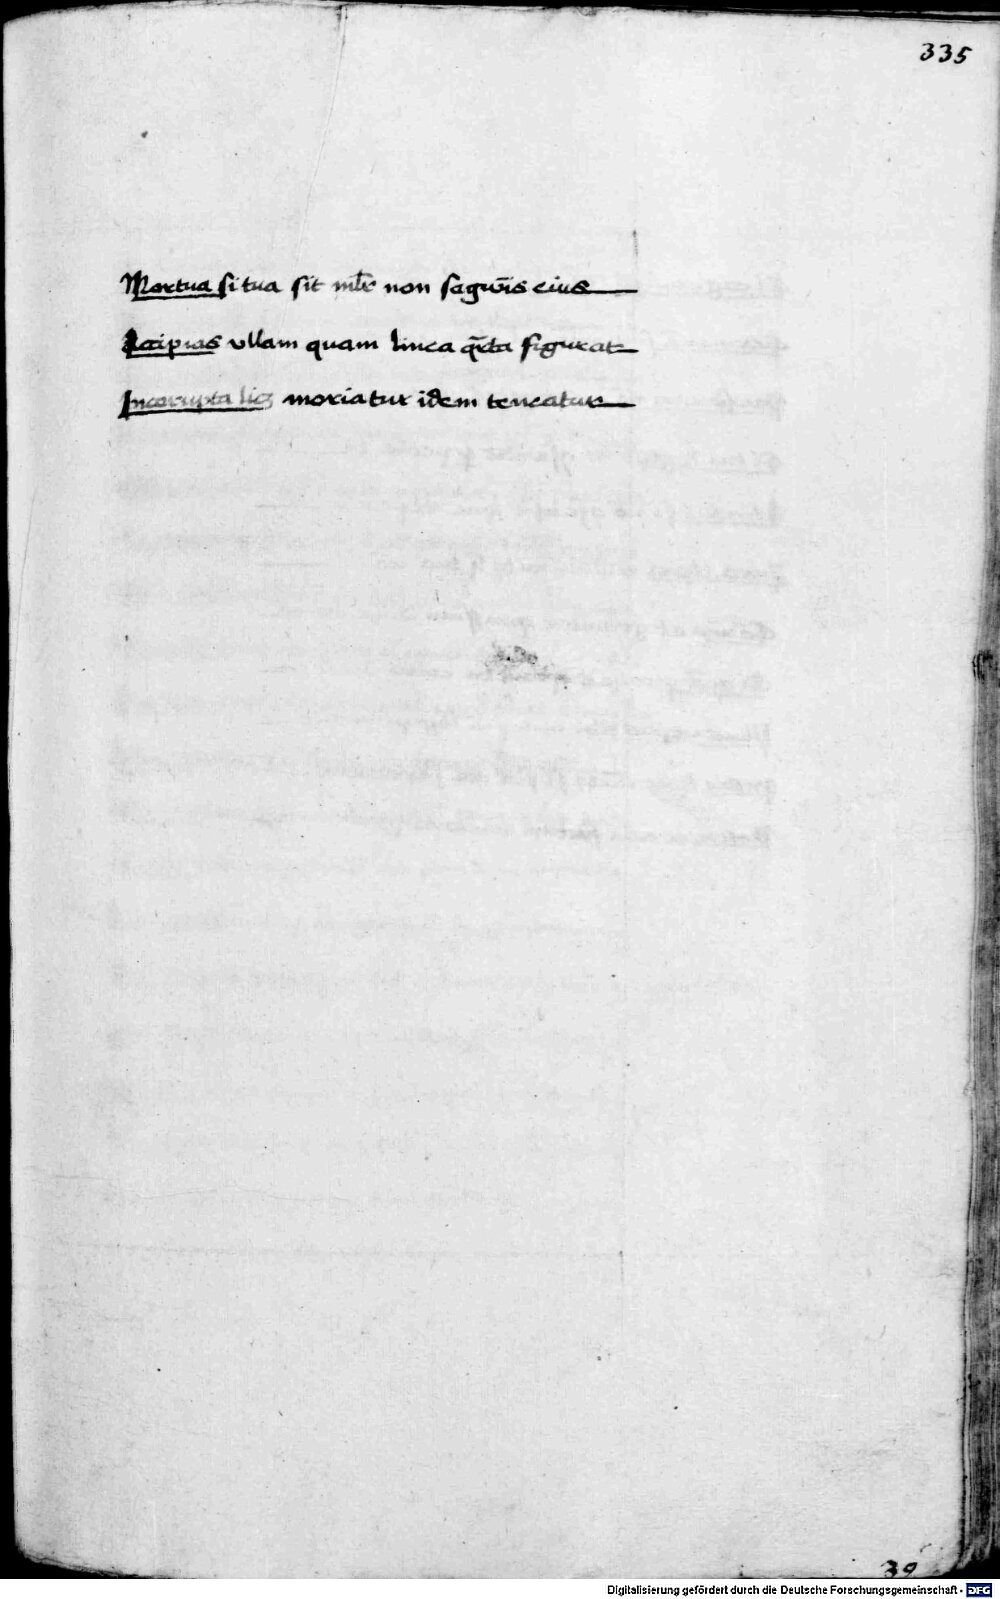 335
Mortua si tua sit ml̅r non sagwi̅s eius
Accipias vllam quam linea q̅rta figurat
Incorrupta licꝫ moriatur idem teneatur
39
Digitalisierung gefördert durch die Deutsche Forschungsgemeinschaft - DFG